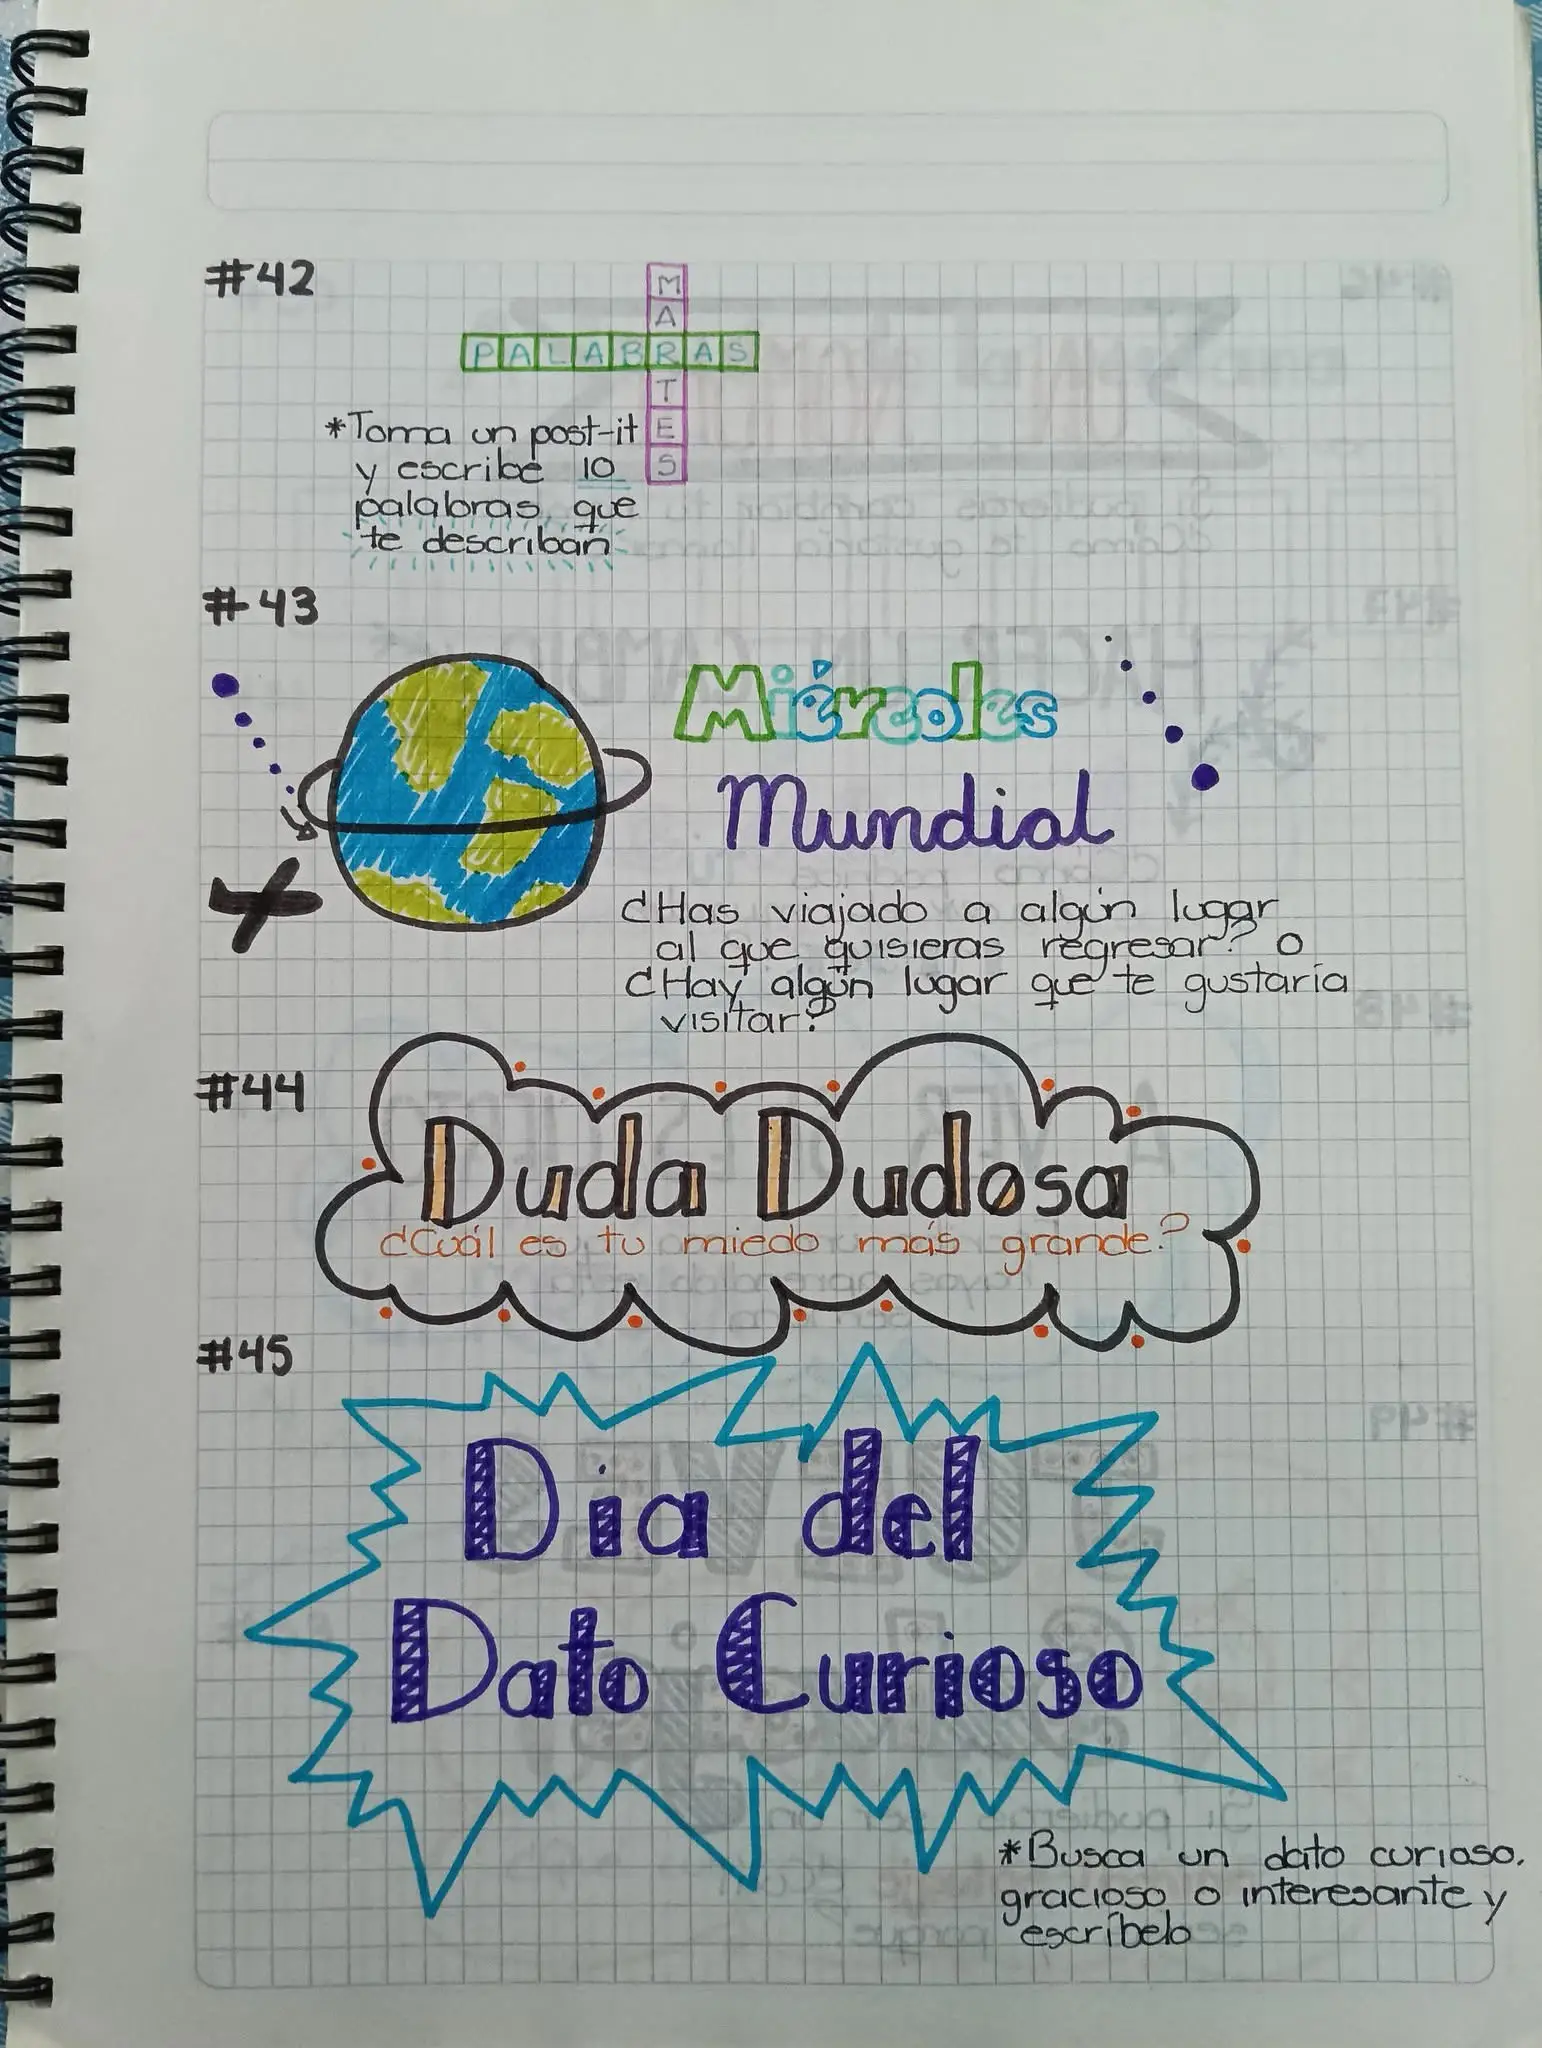 #42
MARTES
PALABRAS
*Toma un post-it
y escribe 10
palabras que
te describan
#43
Miércoles
Mundial
¿Has viajado a algún lugar
al que quisieras regresar? o
¿Hay algún lugar que te gustaría
visitar?
#44
Duda Dudosa
¿Cuál es tu miedo más grande?
#45
Dia del
Dato Curioso
*Busca un dato curioso,
gracioso o interesante y
escríbelo